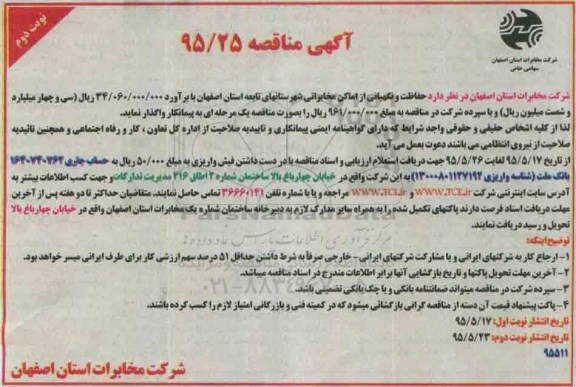 نوبت دوم
آگهی مناقصه ۹۵/۲۵
شرکت مخابرات استان اصفهان
سهامی خاص
شرکت مخابرات استان اصفهان در نظر دارد حفاظت و نگهبانی از اماکن مخابراتی شهرستانهای تابعه استان اصفهان با برآورد ۳۴/۰۶۰/۰۰۰/۰۰۰ ریال (سی و چهار میلیارد
و شصت میلیون ریال) و با سپرده شرکت در مناقصه به مبلغ ۹۶۱/۰۰۰/۰۰۰ ریال را بصورت مناقصه یک مرحله ای به پیمانکار واگذار نماید.
لذا از کلیه اشخاص حقیقی و حقوقی واجد شرایط که دارای گواهینامه ایمنی پیمانکاری و تاییدیه صلاحیت از اداره کل تعاون ، کار و رفاه اجتماعی و همچنین تائیدیه
صلاحیت از نیروی انتظامی می باشند دعوت بعمل می آید.
از تاریخ ۹۵/۵/۱۷ لغایت ۹۵/۵/۲۶ جهت دریافت استعلام ارزیابی و اسناد مناقصه با در دست داشتن فیش واریزی به مبلغ ۵۰/۰۰۰ ریال به حساب جاری ۱۶۴۰۷۴۰۷۶۴
بانک ملت (شناسه واریزی ۱۳۰۰۰۸۰۱۱۳۷۱۹۲) به این شرکت واقع در خیابان چهارباغ بالا ساختمان شماره ۲ اطاق ۲۱۶ مدیریت تدارکات و جهت کسب اطلاعات بیشتر به
آدرس سایت اینترنتی شرکت WWW.TCE.ir و WWW.TCI.ir مراجعه و یا با شماره تلفن ۳۶۶۶۰۱۴۱ تماس حاصل نمایند. متقاضیان حداکثر تا دو هفته پس از آخرین
مهلت دریافت اسناد فرصت دارند پاکتهای تکمیل شده را به همراه سایر مدارک لازم به دبیرخانه ساختمان شماره یک مخابرات استان اصفهان واقع در خیابان چهارباغ بالا
تحویل و رسید دریافت نمایند.
توضیح اینکه:
۱- ارجاع کار به شرکتهای ایرانی و یا مشارکت شرکتهای ایرانی - خارجی صرفاً به شرط داشتن حداقل ۵۱ درصد سهم ارزشی کار برای طرف ایرانی میسر خواهد بود.
۲- آخرین مهلت تحویل پاکتها و تاریخ بازگشایی آنها برابر اطلاعات مندرج در اسناد مناقصه میباشد.
۳- سپرده شرکت در مناقصه میتواند ضمانتنامه بانکی و یا چک بانکی تضمینی باشد.
۴- پاکت پیشنهاد قیمت آن دسته از مناقصه گرانی بازگشائی میشود که در کمیته فنی و بازرگانی امتیاز لازم را کسب کرده باشند.
تاریخ انتشار نوبت اول: ۹۵/۵/۱۷
تاریخ انتشار نوبت دوم: ۹۵/۵/۲۳
۹۵۵۱۱
شرکت مخابرات استان اصفهان